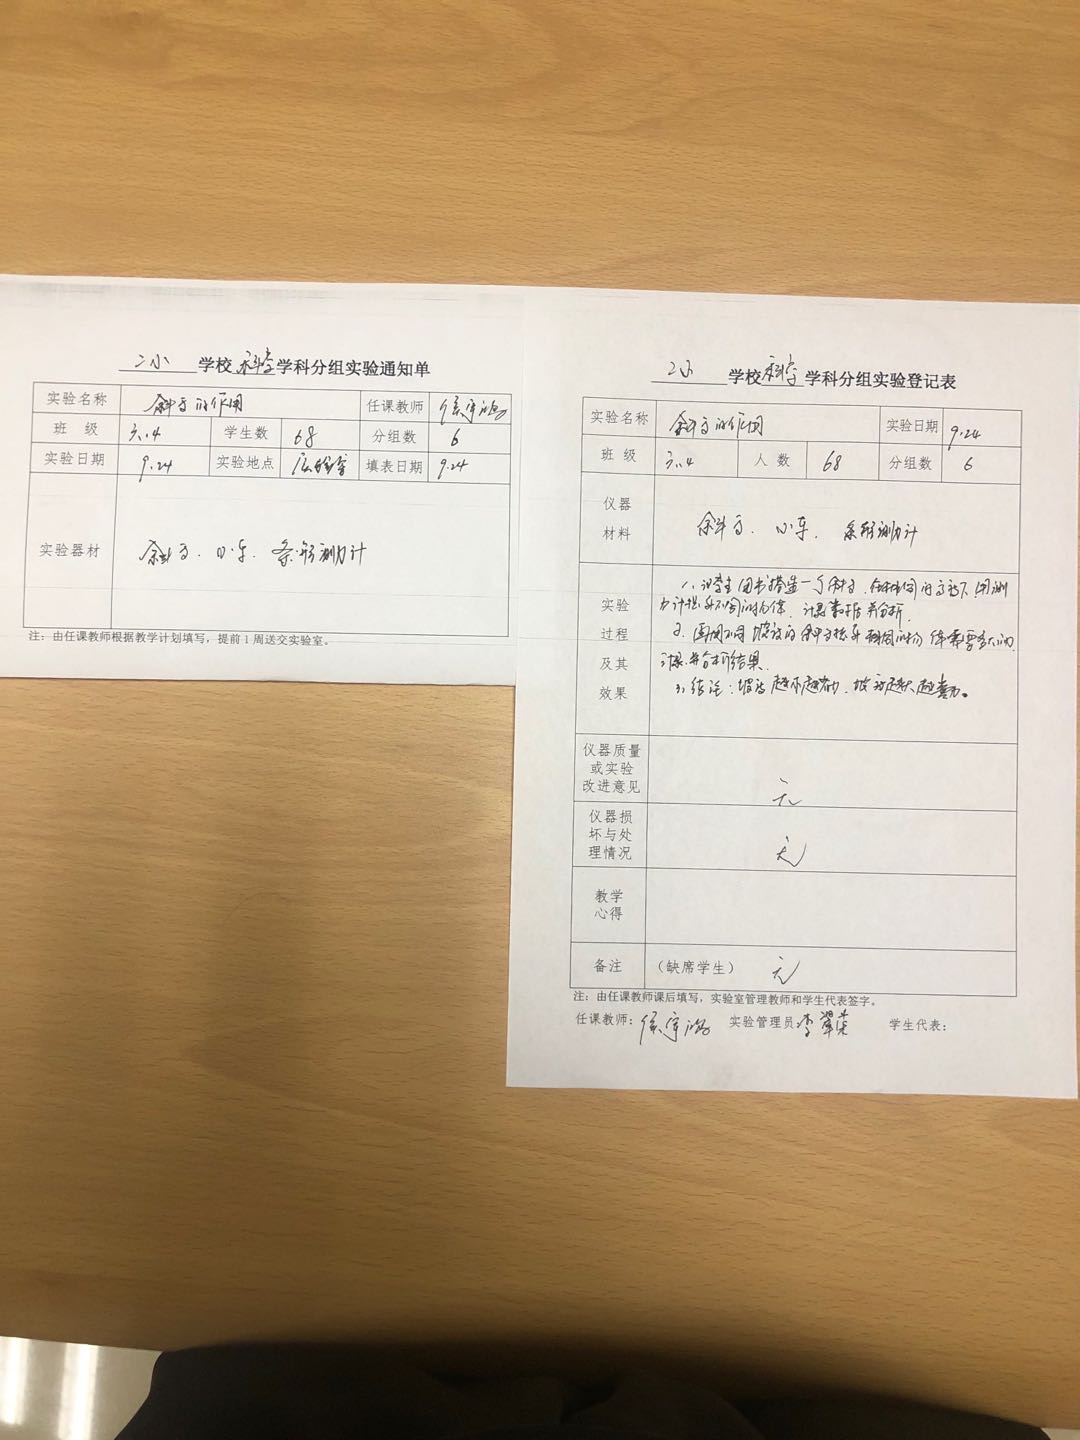 二小 学校 科学 学科分组实验通知单
实验名称 斜面的作用 任课教师 侯宇鸿
班 级 六.4 学生数 68 分组数 6
实验日期 9.24 实验地点 实验室 填表日期 9.24
实验器材 斜面、小车、条形测力计
注：由任课教师根据教学计划填写，提前1周送交实验室。
二小 学校 科学 学科分组实验登记表
实验名称 斜面的作用 实验日期 9.24
班 级 六.4 人 数 68 分组数 6
仪器
材料
斜面、小车、条形测力计
实验
过程
及其
效果
1、让学生用书搭造一个斜面，在相同的高度下，用测
力计提升不同的物体，记录数据并分析。
2、再用不同坡度的斜面提升相同的物体需要多大的力
记录并分析结果。
3、结论：坡度越小越省力，坡度越大越费力。
仪器质量
或实验
改进意见
无
仪器损
坏与处
理情况
无
教学
心得
备注 （缺席学生） 无
注：由任课教师课后填写，实验室管理教师和学生代表签字。
任课教师： 侯宇鸿 实验管理员 李翠荣 学生代表：